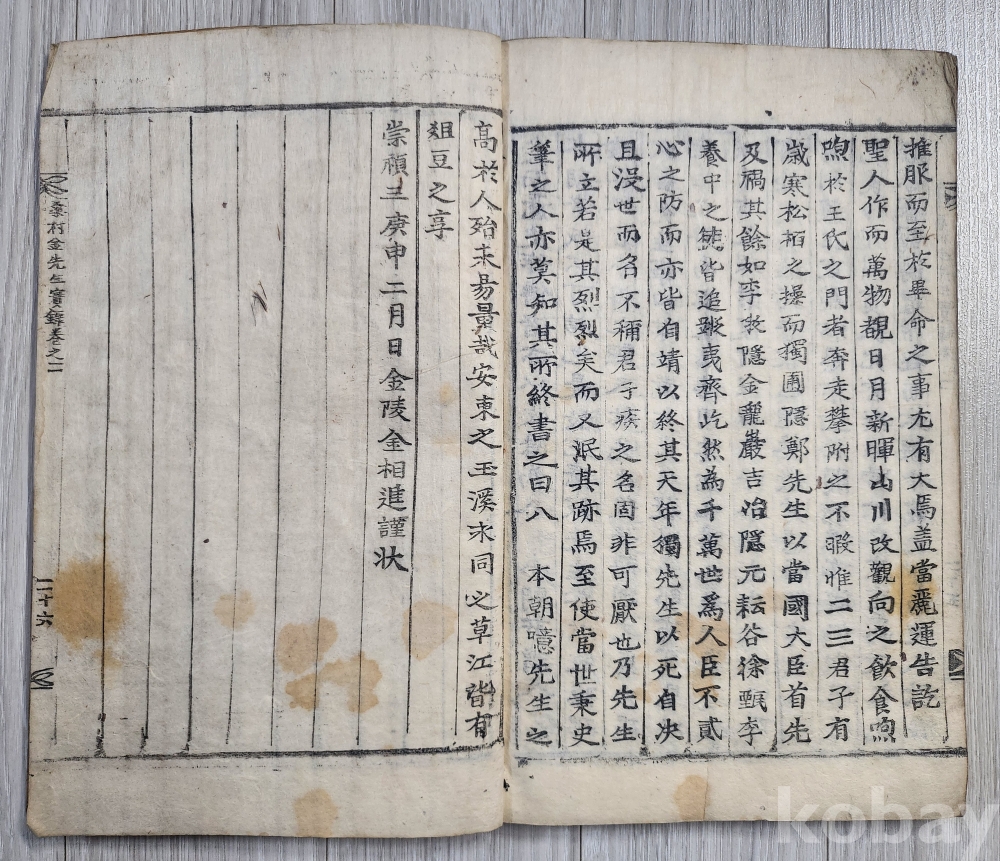 推服而至於畢命之事尤有大焉盖當麗運告訖
聖人作而萬物覩日月新暉山川改觀向之飮食喣
喣於王氏之門者奔走攀附之不暇惟二三君子有
歲寒松栢之操而獨圃隱鄭先生以當國大臣首先
及禍其餘如李牧隱金籠巖吉冶隱元耘谷徐甄李
養中之徒皆追蹤夷齊屹然為千萬世爲人臣不貳
心之防而亦皆自靖以終其天年獨先生以死自决
且沒世而名不稱君子疾之名固非可厭也乃先生
所立若是其烈烈矣而又泯其跡焉至使當世秉史
筆之人亦莫知其所終書之曰入 本朝噫先生之
高於人殆未易量哉安東之玉溪永同之草江皆有
俎豆之享
崇禎三庚申二月日金陵金相進謹狀
村金先生實錄卷之二
二十六
kobay